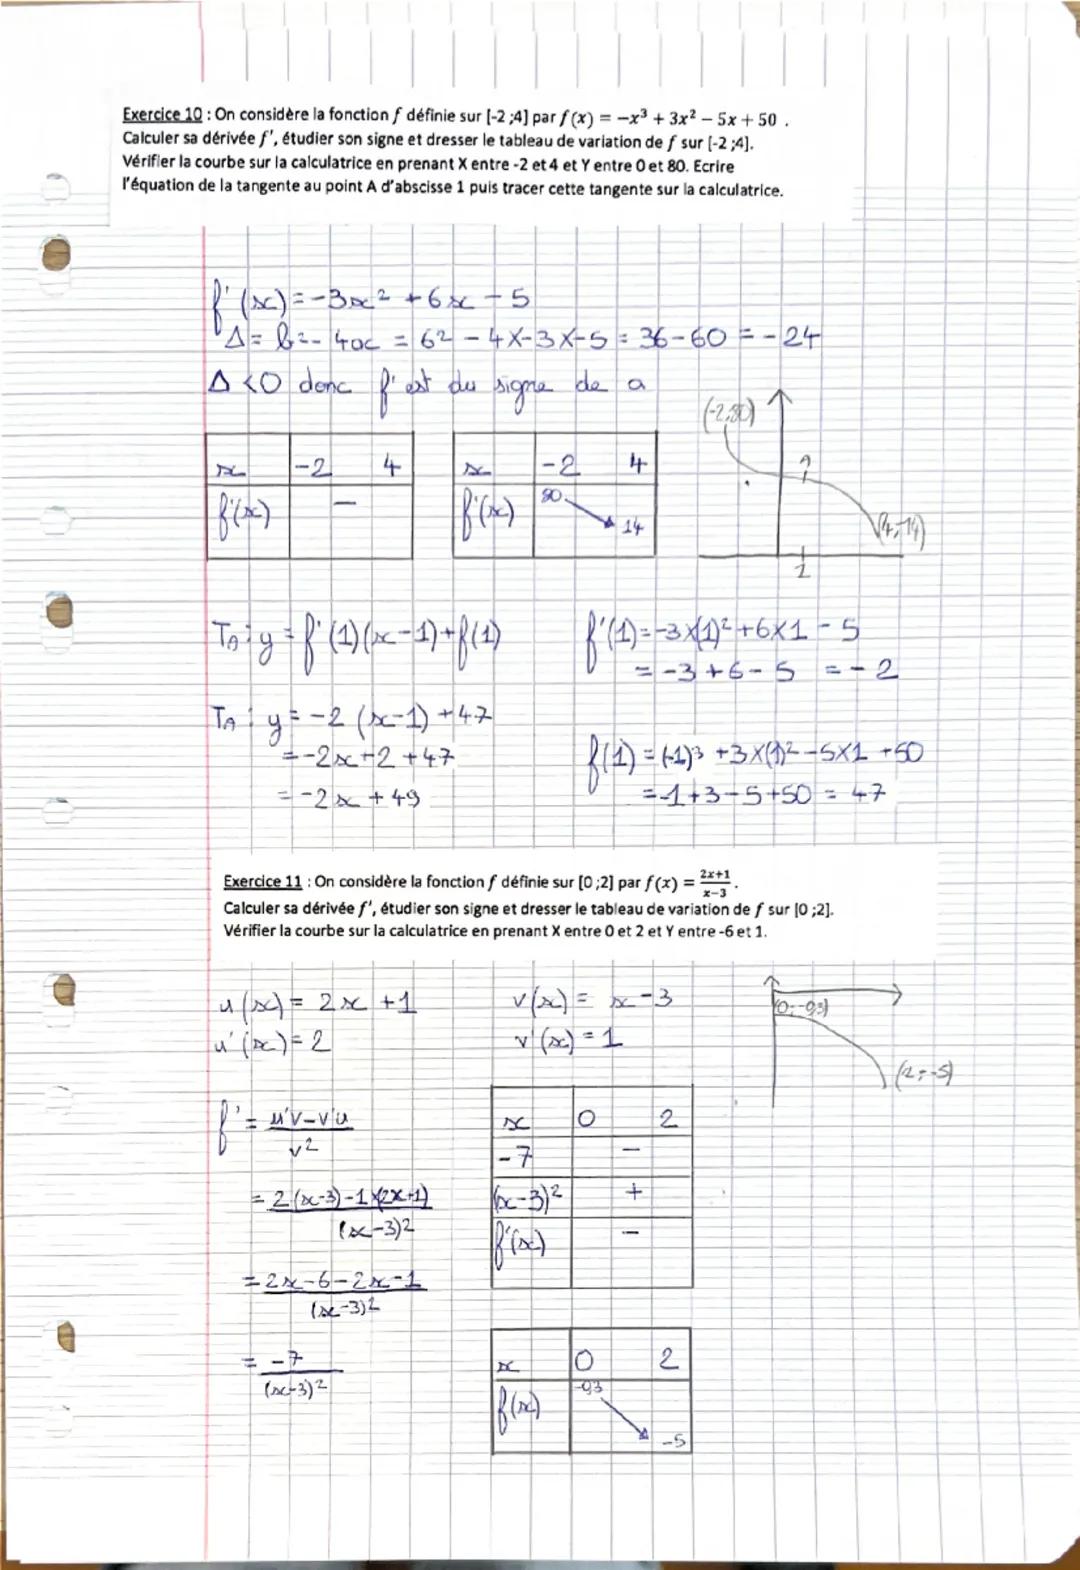 Exercice 10 : On considère la fonction f définie sur [-2 ;4] par f(x) = −x³ + 3x² − 5x + 50 .
Calculer sa dérivée f', étudier son signe et dresser le tableau de variation de f sur [-2 ;4].
Vérifier la courbe sur la calculatrice en prenant X entre -2 et 4 et Y entre 0 et 80. Ecrire
l'équation de la tangente au point A d'abscisse 1 puis tracer cette tangente sur la calculatrice.
f'(x) = -3x² + 6x - 5
Δ = b²- 4ac = 6² - 4x-3x-5 = 36-60 = -24
Δ <0 donc f' est du signe de a
(-2,80)
x -2 4
f'(x) -
x -2 4
f'(x) 80 14
(4,14)
1
T_A : y = f'(1)(x-1)+f(1)
f'(1)=-3x(1)²+6x1 - 5
= -3 +6- 5 = - 2
T_A : y = -2 (x-1) +47
= -2x+2 +47
= -2x + 49
f(1) = (-1)³ +3x(1)²-5x1 +50
=-1+3-5+50 = 47
Exercice 11 : On considère la fonction f définie sur [0 ;2] par f(x) = (2x+1)/(x−3) .
Calculer sa dérivée f', étudier son signe et dresser le tableau de variation de f sur [0 ;2].
Vérifier la courbe sur la calculatrice en prenant X entre 0 et 2 et Y entre -6 et 1.
u(x) = 2x +1
v(x) = x-3
u'(x) = 2
v'(x) = 1
(0;-0,3)
(2;-5)
f' = (u'v-v'u)/v²
= (2(x-3)-1x(2x+1))/(x-3)²
= (2x-6-2x-1)/(x-3)²
= -7/(x-3)²
x 0 2
-7 -
(x-3)² +
f'(x) -
x 0 2
f(x) -0,3 -5